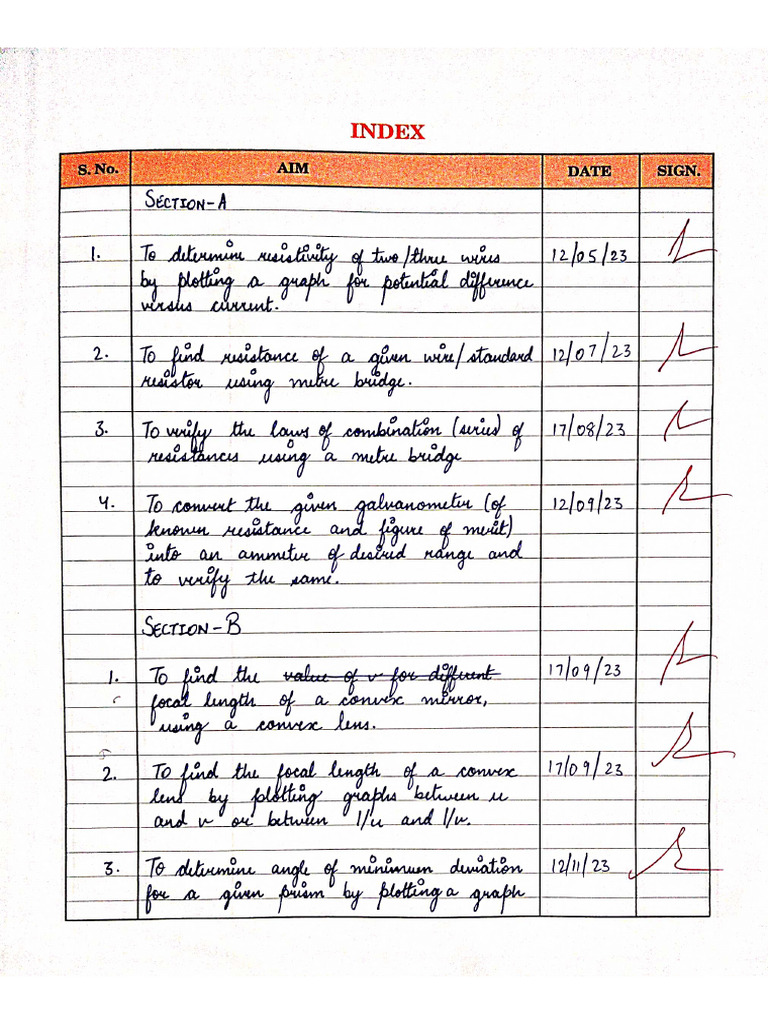 INDEX
S. No. AIM DATE SIGN.
SECTION-A
1. To determine resistivity of two/three wires 12/05/23
by plotting a graph for potential difference
versus current.
2. To find resistance of a given wire/standard 12/07/23
resistor using metre bridge.
3. To verify the laws of combination (series) of 17/08/23
resistances using a metre bridge
4. To convert the given galvanometer (of 12/09/23
known resistance and figure of merit)
into an ammeter of desired range and
to verify the same.
SECTION-B
1. To find the value of v for different 17/09/23
focal length of a convex mirror,
using a convex lens.
2. To find the focal length of a convex 17/09/23
lens by plotting graphs between u
and v or between 1/u and 1/v.
3. To determine angle of minimum deviation 12/11/23
for a given prism by plotting a graph